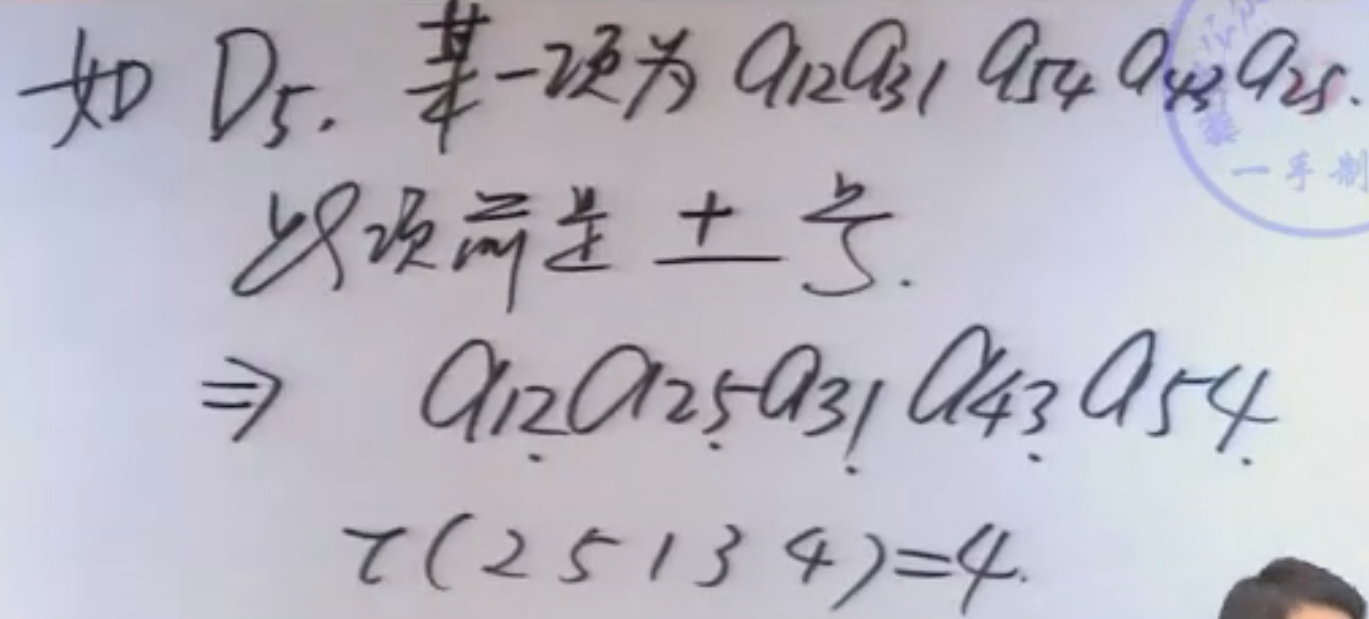 如 D₅. 某一项为 a₁₂a₃₁ a₅₄ a₄₃ a₂₅.
此项前是 ± 号.
⇒ a₁₂a₂₅a₃₁ a₄₃ a₅₄.
τ(2 5 1 3 4)=4.
一手制